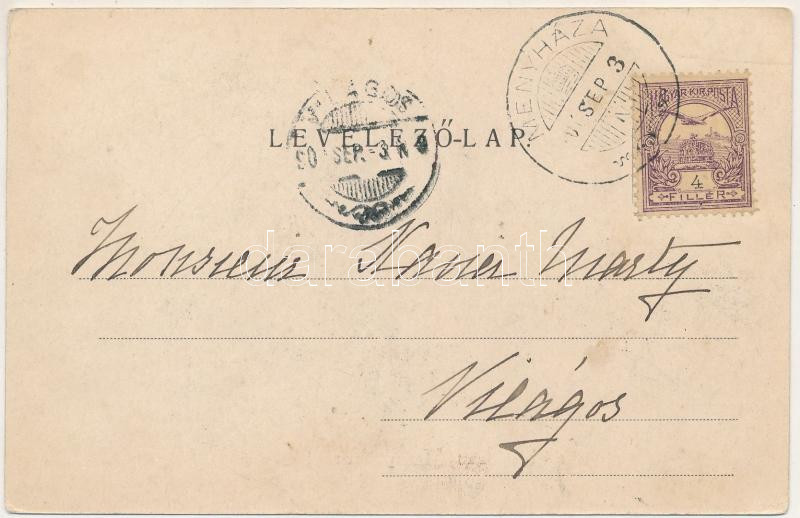 MENYHÁZA
SEP 3
VILÁGOS
SEP. -3. N
MAGYAR·KIR·POSTA
4
FILLÉR
LEVELEZŐ-LAP.
Monsieur Xavier Marty
darabanth
Világos